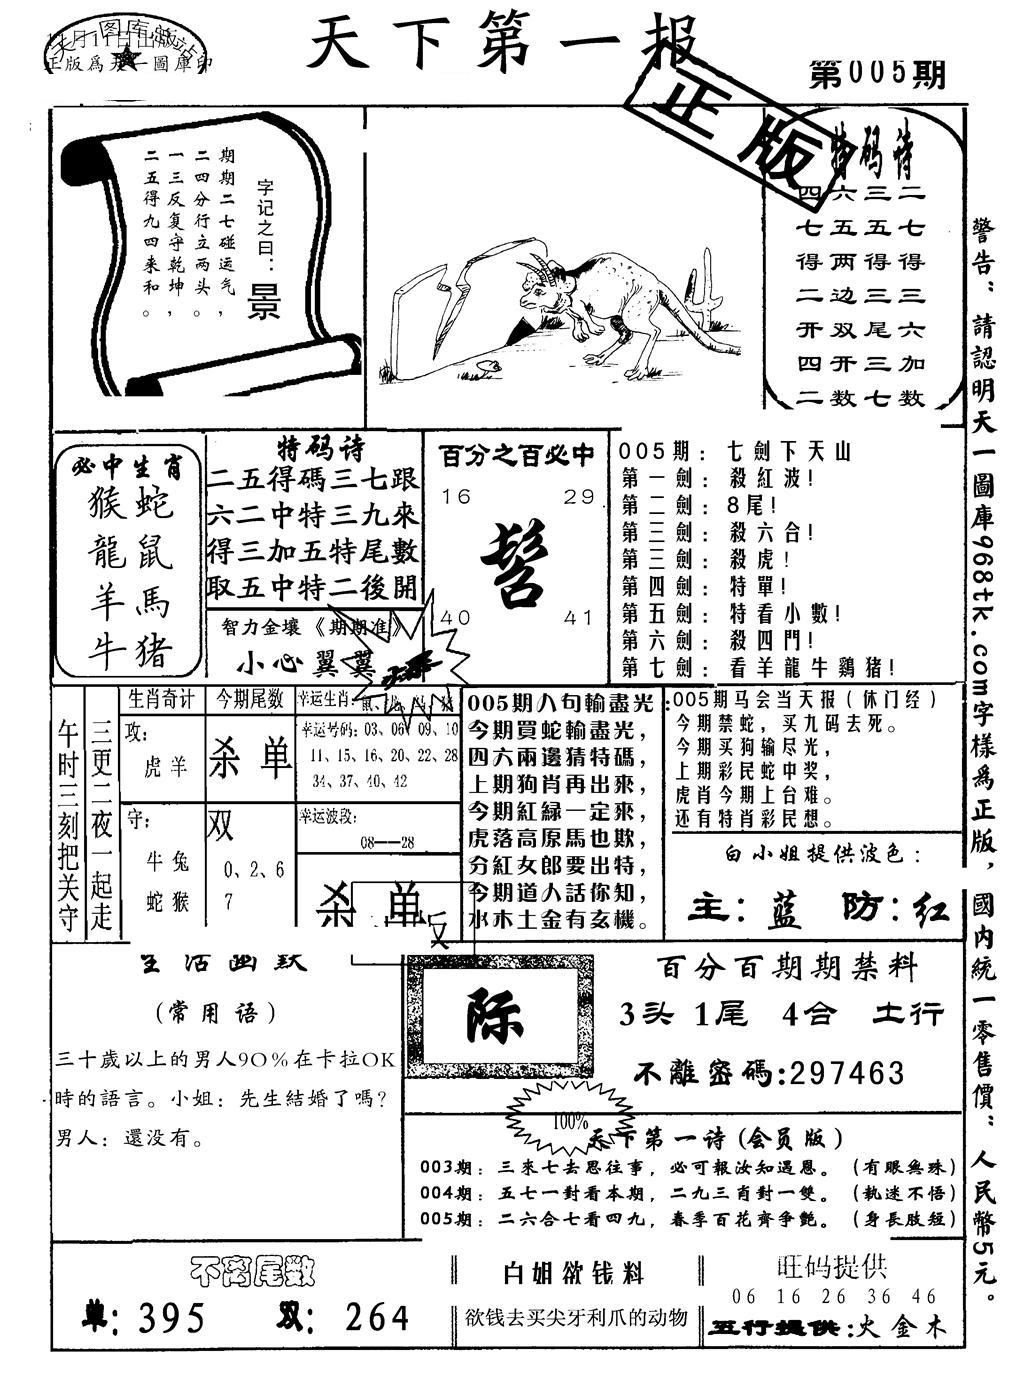 天下第一报
第005期
天一图库总站
月11日出版
正版爲天一圖庫印
正版
字记之曰：
景
期期二七碰运气，
二四分行立两头。
一三反复守乾坤，
二五得九四来和。
特码诗
四六三二
七五五七
得两得得
二边三三
开双尾六
四开三加
二数七数
警告：請認明天一圖庫968tk.com字樣爲正版，國内統一零售價：人民幣5元。
必中生肖
猴蛇
龍鼠
羊馬
牛猪
特码诗
二五得碼三七跟
六二中特三九來
得三加五特尾數
取五中特二後開
智力金壤《期期准》
小心翼翼
百分之百必中
16 29
髻
40 41
005期：七劍下天山
第一劍：殺紅波！
第二劍：8尾！
第三劍：殺六合！
第三劍：殺虎！
第四劍：特單！
第五劍：特看小數！
第六劍：殺四門！
第七劍：看羊龍牛鷄猪！
午时三刻把关守
三更二夜一起走
生肖奇计
攻：
虎羊
守：
牛兔
蛇猴
今期尾数
杀单
双
0、2、6
7
幸运生肖：
幸运号码：03、06、09、10
11、15、16、20、22、28
34、37、40、42
幸运波段：
08—28
杀单
005期八句輸盡光：
今期買蛇輸盡光，
四六兩邊猜特碼，
上期狗肖再出來，
今期紅緑一定來，
虎落高原馬也欺，
分紅女郎要出特，
今期道人話你知，
水木土金有玄機。
005期马会当天报（休门经）
今期禁蛇，买九码去死。
今期买狗输尽光，
上期彩民蛇中奖，
虎肖今期上台难。
还有特肖彩民想。
白小姐提供波色：
主：蓝 防：红
生活幽默
（常用语）
三十歲以上的男人90%在卡拉OK
時的語言。小姐：先生結婚了嗎？
男人：還没有。
际
百分百期期禁料
3头 1尾 4合 土行
不離密碼：297463
100%
天下第一诗（会员版）
003期：三來七去思往事，必可報汝知遇恩。（有眼無珠）
004期：五七一對看本期，二九三肖對一雙。（執迷不悟）
005期：二六合七看四九，春季百花齊争艷。（身長肢短）
不离尾数
单：395 双：264
白姐欲钱料
欲钱去买尖牙利爪的动物
旺码提供
06 16 26 36 46
五行提供：火金木